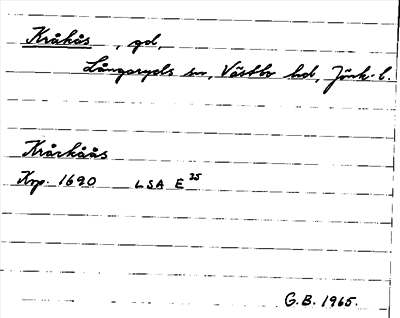 Kråkås, gd,
Långaryds sn, Västbo hd, Jönk. l.
Kråckåås
Krp. 1690 LSA E 25
G.B. 1965.